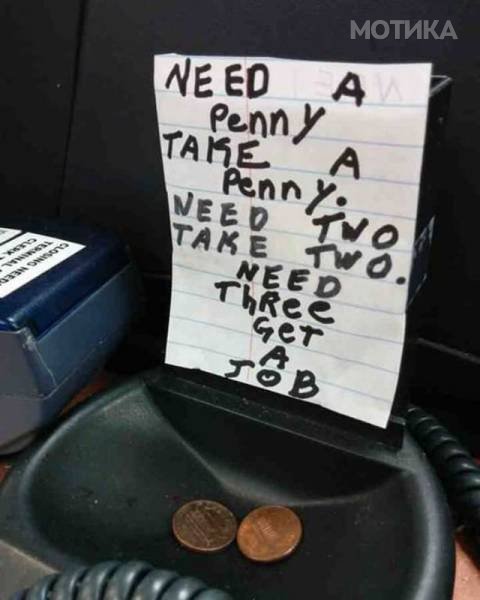 МОТИКА
NEED A
Penny
TAKE A
Penny.
NEED TWO
TAKE TWO.
NEED
ThRee
GeT
A
JOB
CLOSING NEED
TERMINAL
CLERK